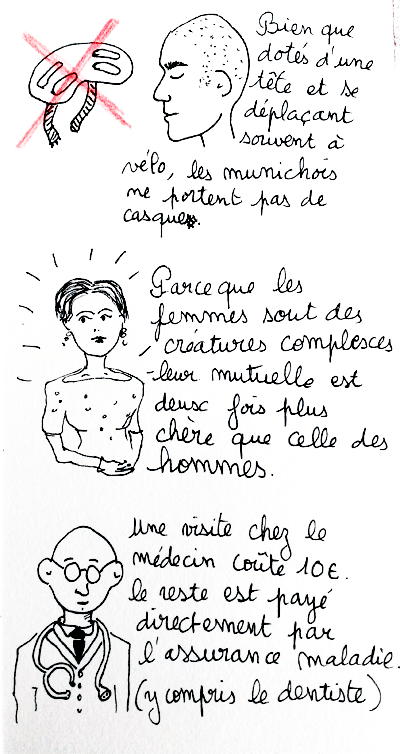 Bien que
dotés d'une
tête et se
déplaçant
souvent à
vélo, les munichois
ne portent pas de
casque.
Parce que les
femmes sont des
créatures complexes
leur mutuelle est
deux fois plus
chère que celle des
hommes.
Une visite chez le
médecin coûte 10€.
le reste est payé
directement par
l'assurance maladie.
(y compris le dentiste)